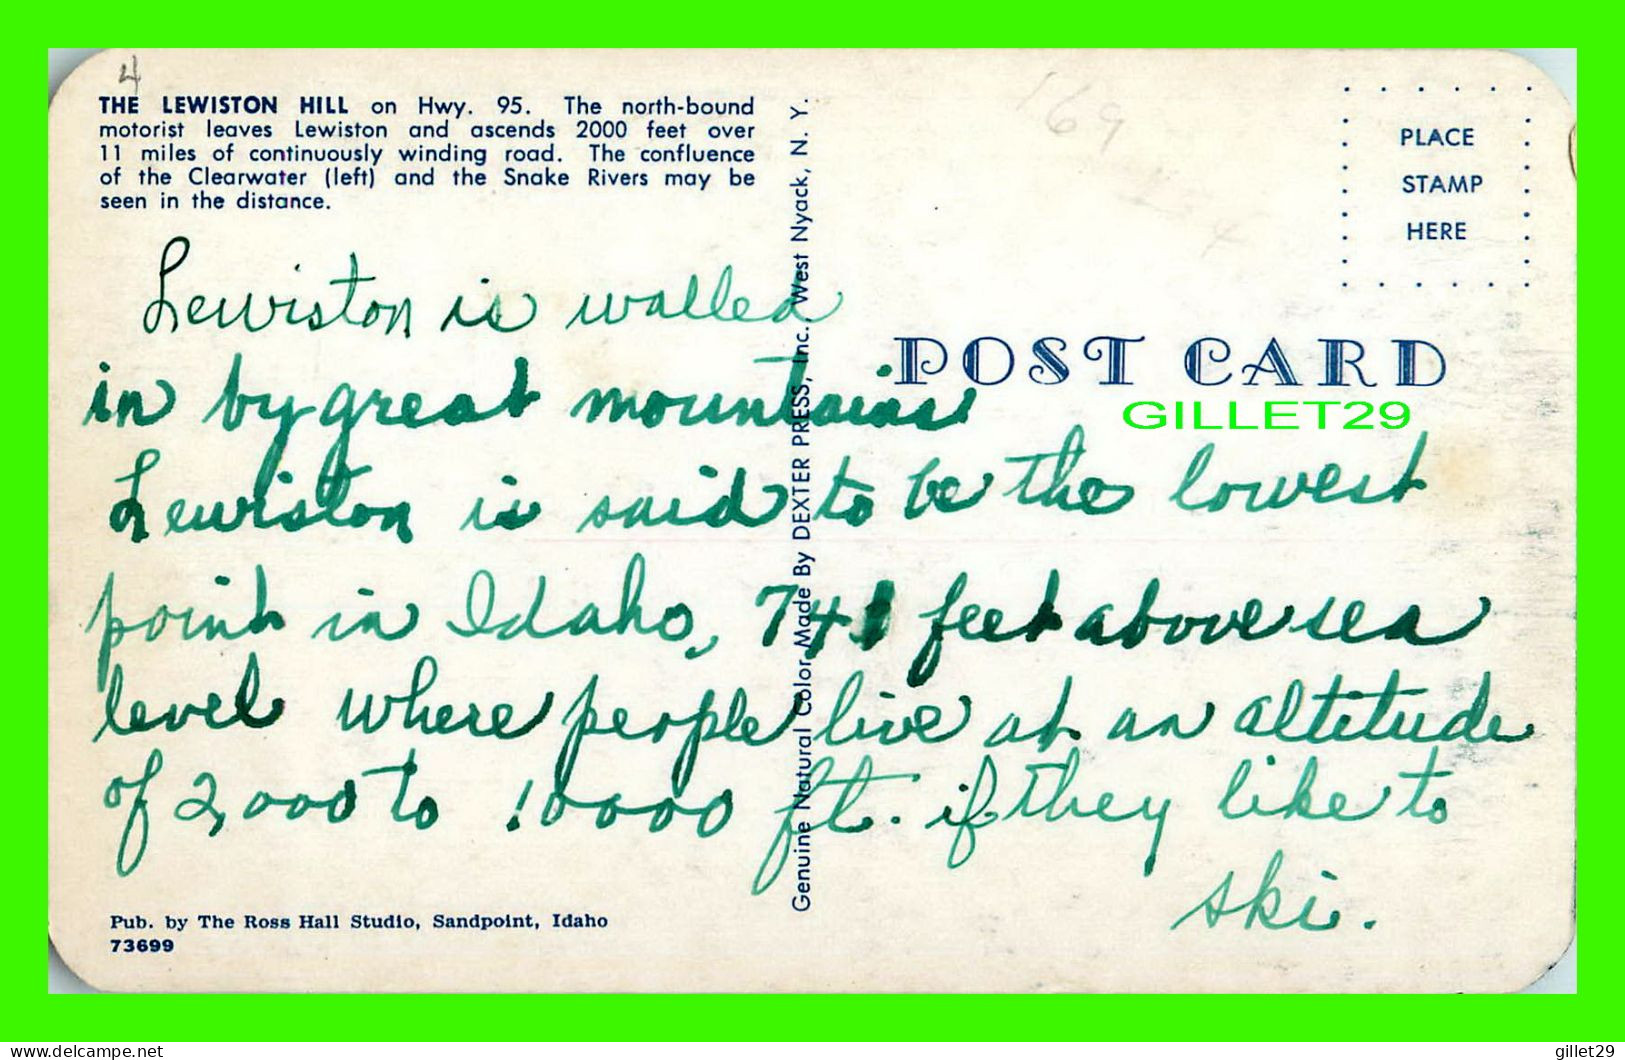 4
THE LEWISTON HILL on Hwy. 95. The north-bound
motorist leaves Lewiston and ascends 2000 feet over
11 miles of continuously winding road. The confluence
of the Clearwater (left) and the Snake Rivers may be
seen in the distance.
169
PLACE
STAMP
HERE
POST CARD
GILLET29
Lewiston is walled
in by great mountains
Lewiston is said to be the lowest
point in Idaho, 741 feet above sea
level where people live at an altitude
of 2,000 to 10000 ft. if they like to
ski.
Genuine Natural Color Made By DEXTER PRESS, Inc. West Nyack, N. Y.
Pub. by The Ross Hall Studio, Sandpoint, Idaho
73699
delcampe.net
gillet29